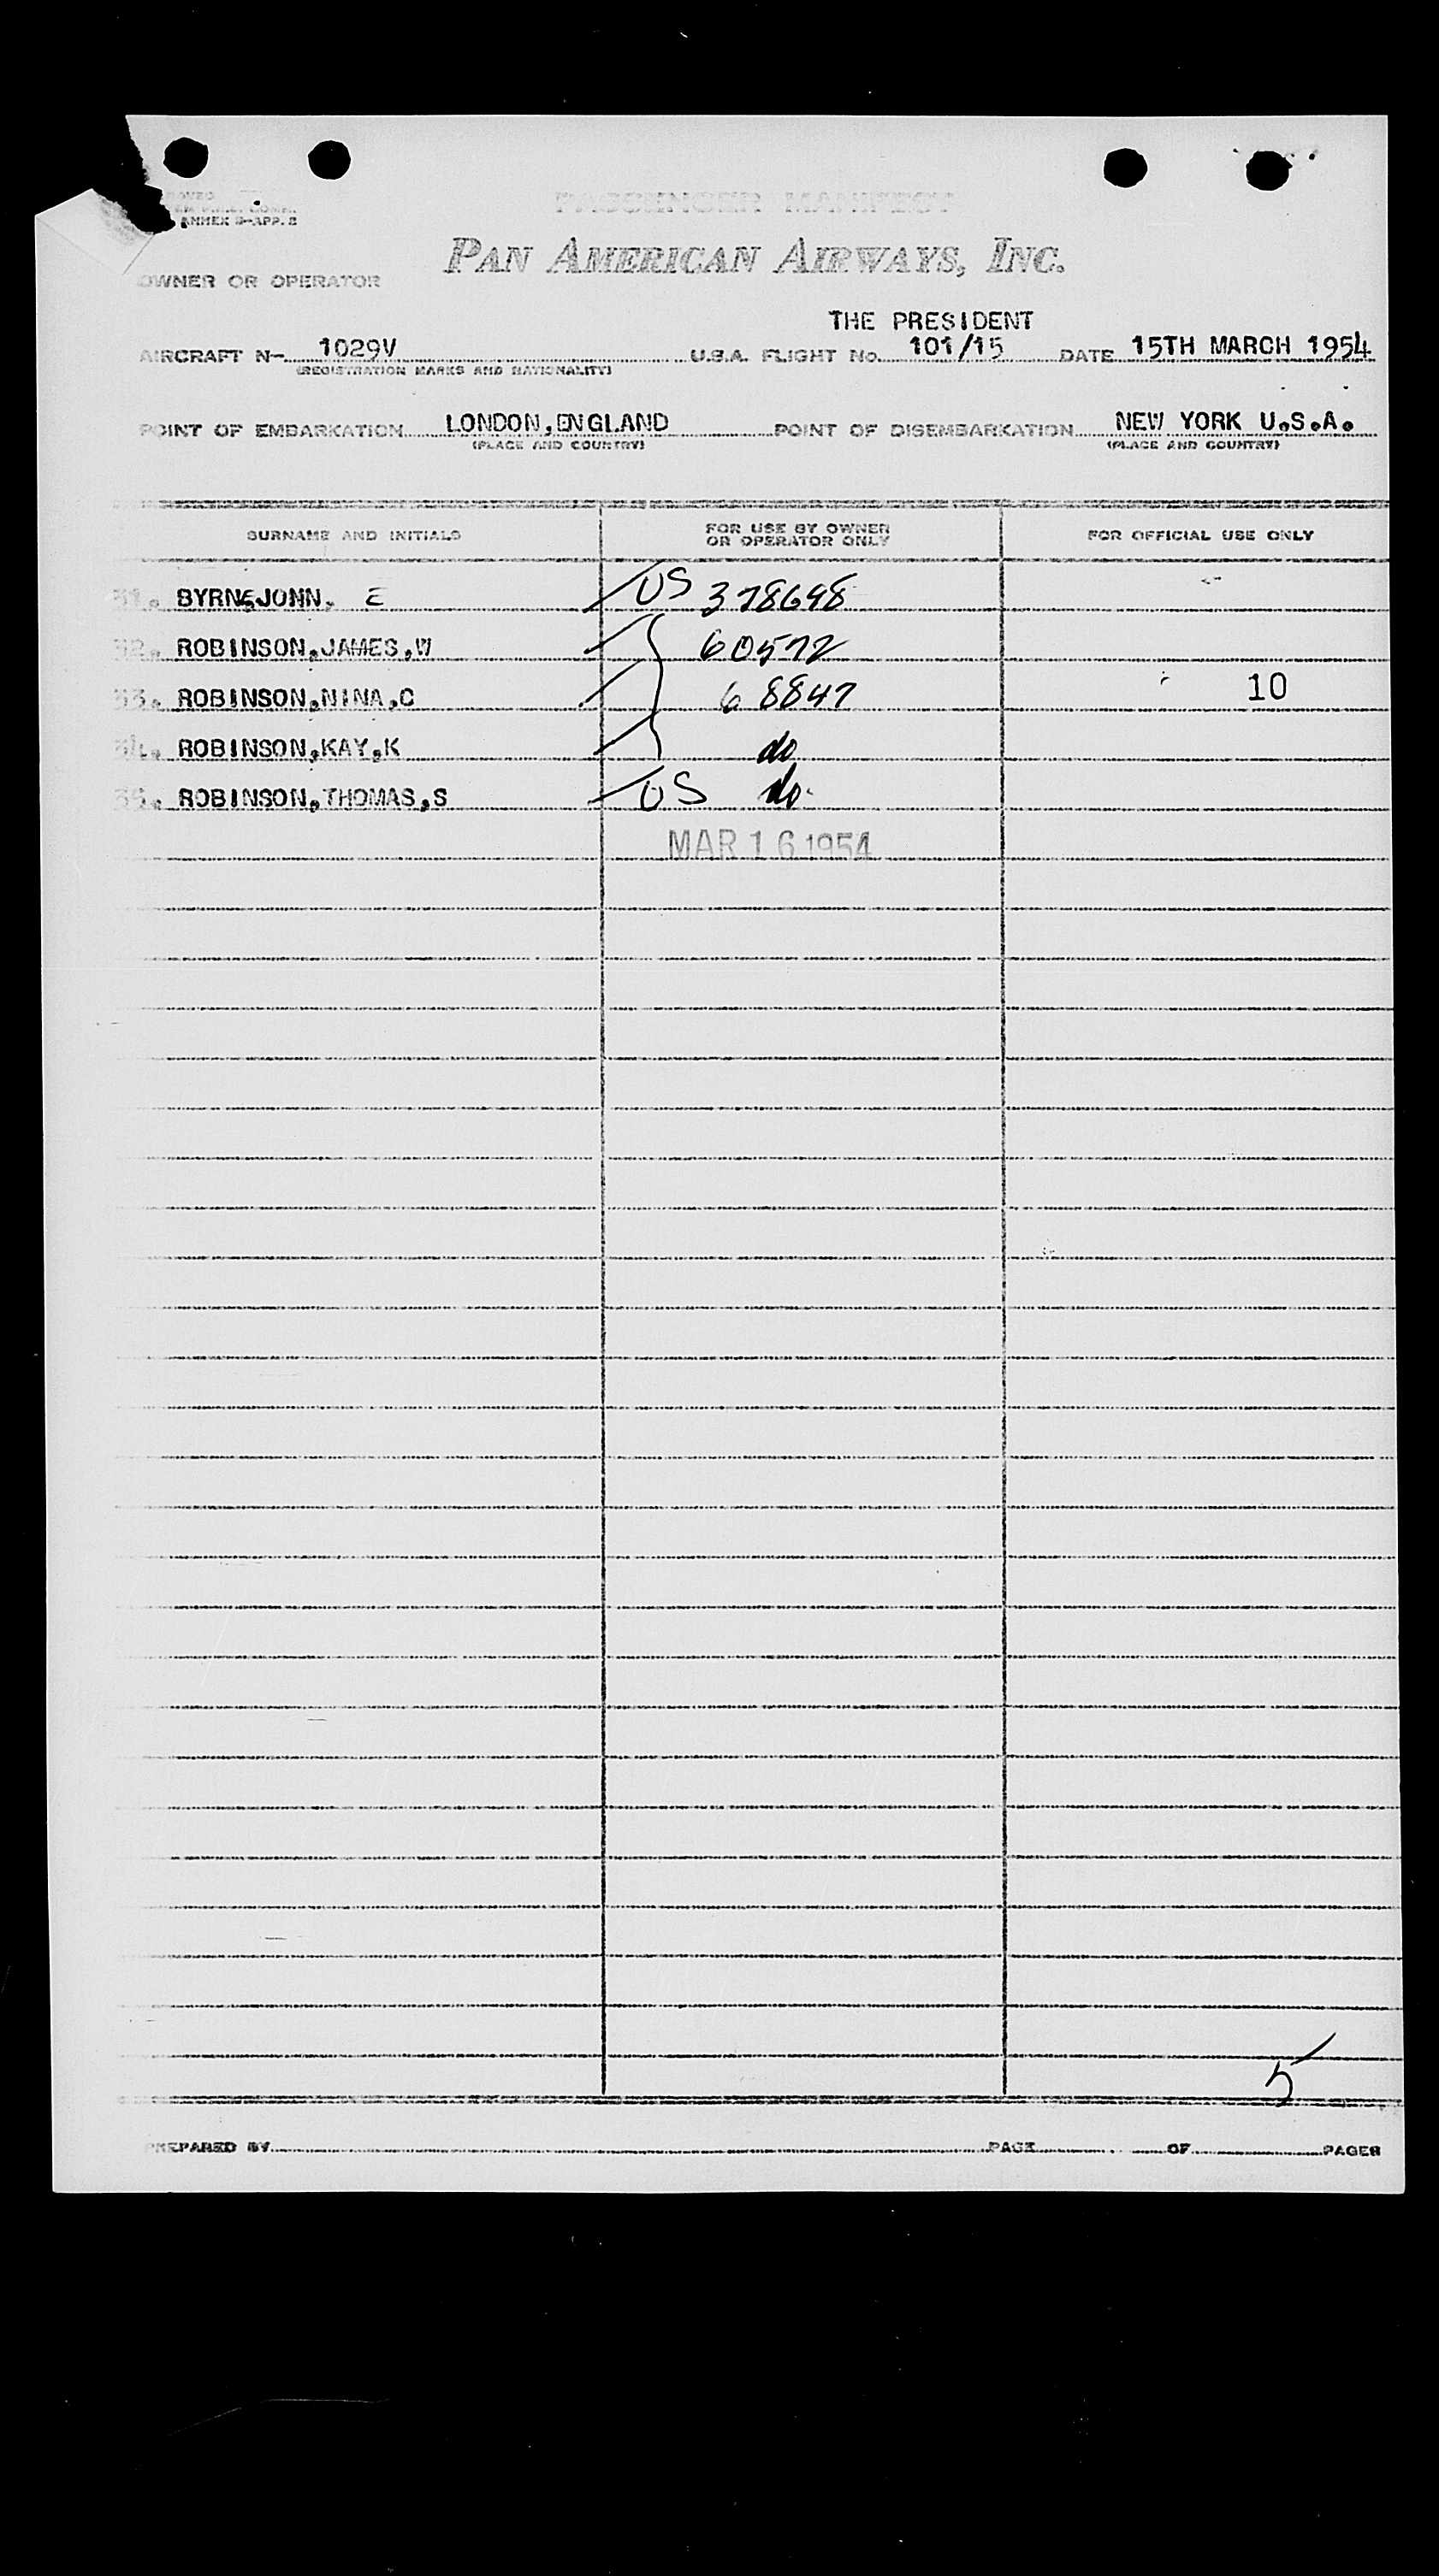 PASSENGER MANIFEST
ANNEX 9-APP. 2
PAN AMERICAN AIRWAYS, INC.
OWNER OR OPERATOR
THE PRESIDENT
AIRCRAFT N- 1029V U.S.A. FLIGHT No. 101/15 DATE 15TH MARCH 1954
(REGISTRATION MARKS AND NATIONALITY)
POINT OF EMBARKATION LONDON,ENGLAND POINT OF DISEMBARKATION NEW YORK U.S.A.
(PLACE AND COUNTRY) (PLACE AND COUNTRY)
SURNAME AND INITIALS FOR USE BY OWNER OR OPERATOR ONLY FOR OFFICIAL USE ONLY
31. BYRNE,JOHN. E US 378698
32. ROBINSON,JAMES,W 60572
33. ROBINSON,NINA,C 68847 10
34. ROBINSON,KAY,K do
35. ROBINSON,THOMAS,S US do
MAR 16 1954
5
PREPARED BY PAGE OF PAGES